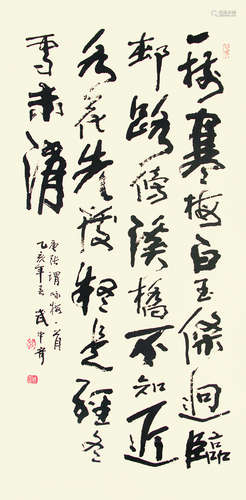 一樹寒梅白玉條迥臨
邨路傍溪橋不知近
水花先發疑是經冬
雪未消
唐張謂詠梅一首
乙亥年春武中奇